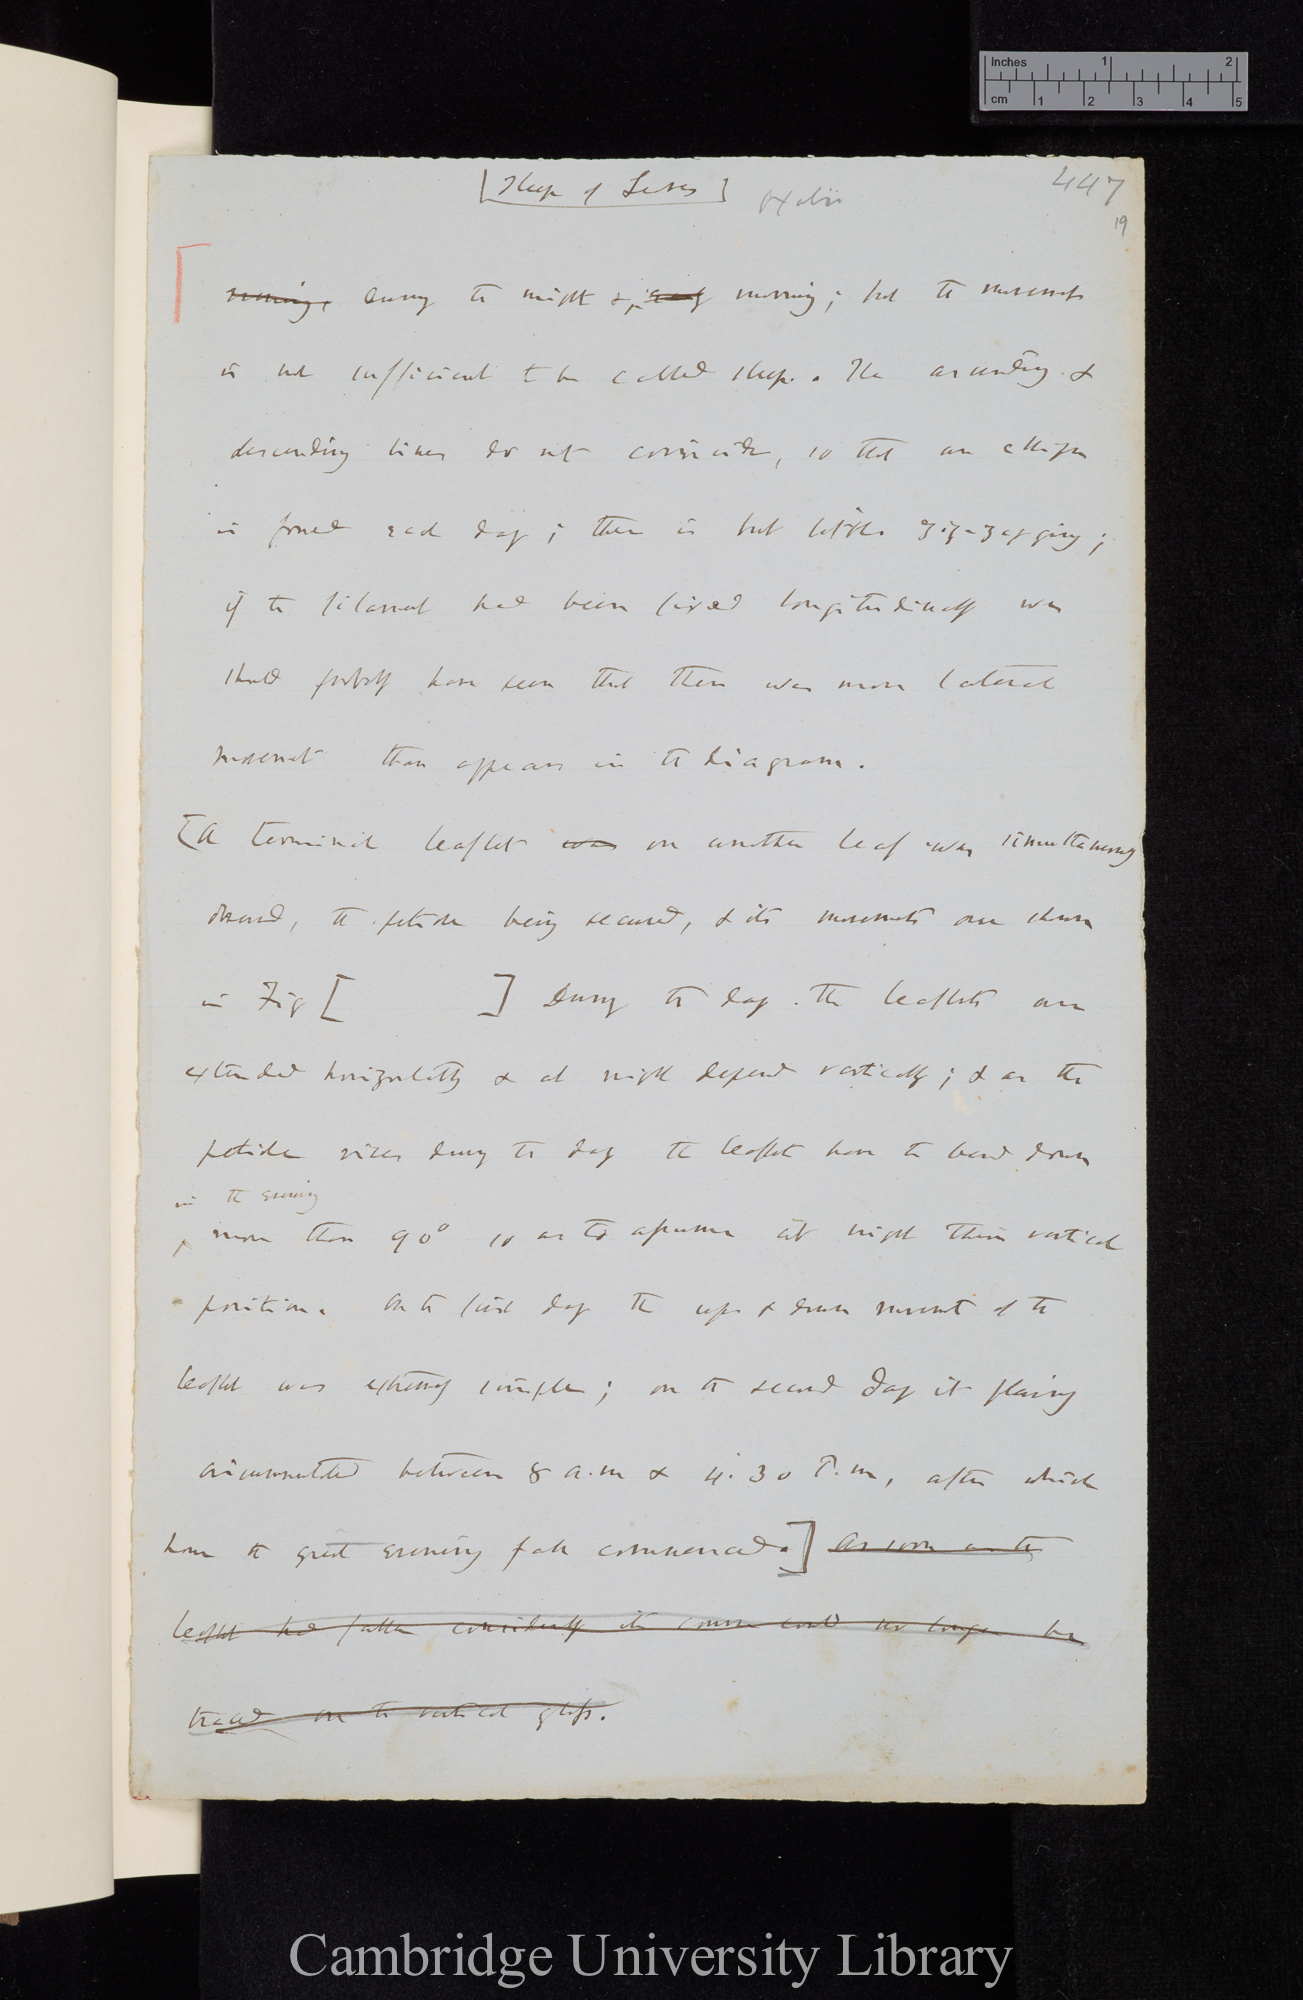 Inches 1 2
cm 1 2 3 4 5
[Sleep of Leaves] Oxalis 447
19
evening, during the night & early morning; but the movement
is not sufficient to be called sleep. The ascending &
descending lines do not coincide, so that an ellipse
is formed each day; there is but little zig-zagging;
if the filament had been fixed longitudinally we
should probably have seen that there was more lateral
movement than appears in the diagram.
[A terminal leaflet was on another leaf was simultaneously
observed, the petiole being secured, & its movements are shown
in Fig [ ] During the day the leaflets are
extended horizontally & at night depend vertically; & as the
petiole rises during the day the leaflets have to bend down
in the evening
more than 90° so as to assume at night their vertical
position. On the first day the up & down movement of the
leaflet was extremely simple; on the second day it plainly
circumnutated between 8 a.m & 4.30 P.m, after which
hour the great evening fall commenced.] As soon as the
leaflet had fallen considerably its course could no longer be
traced on the vertical glass.
Cambridge University Library